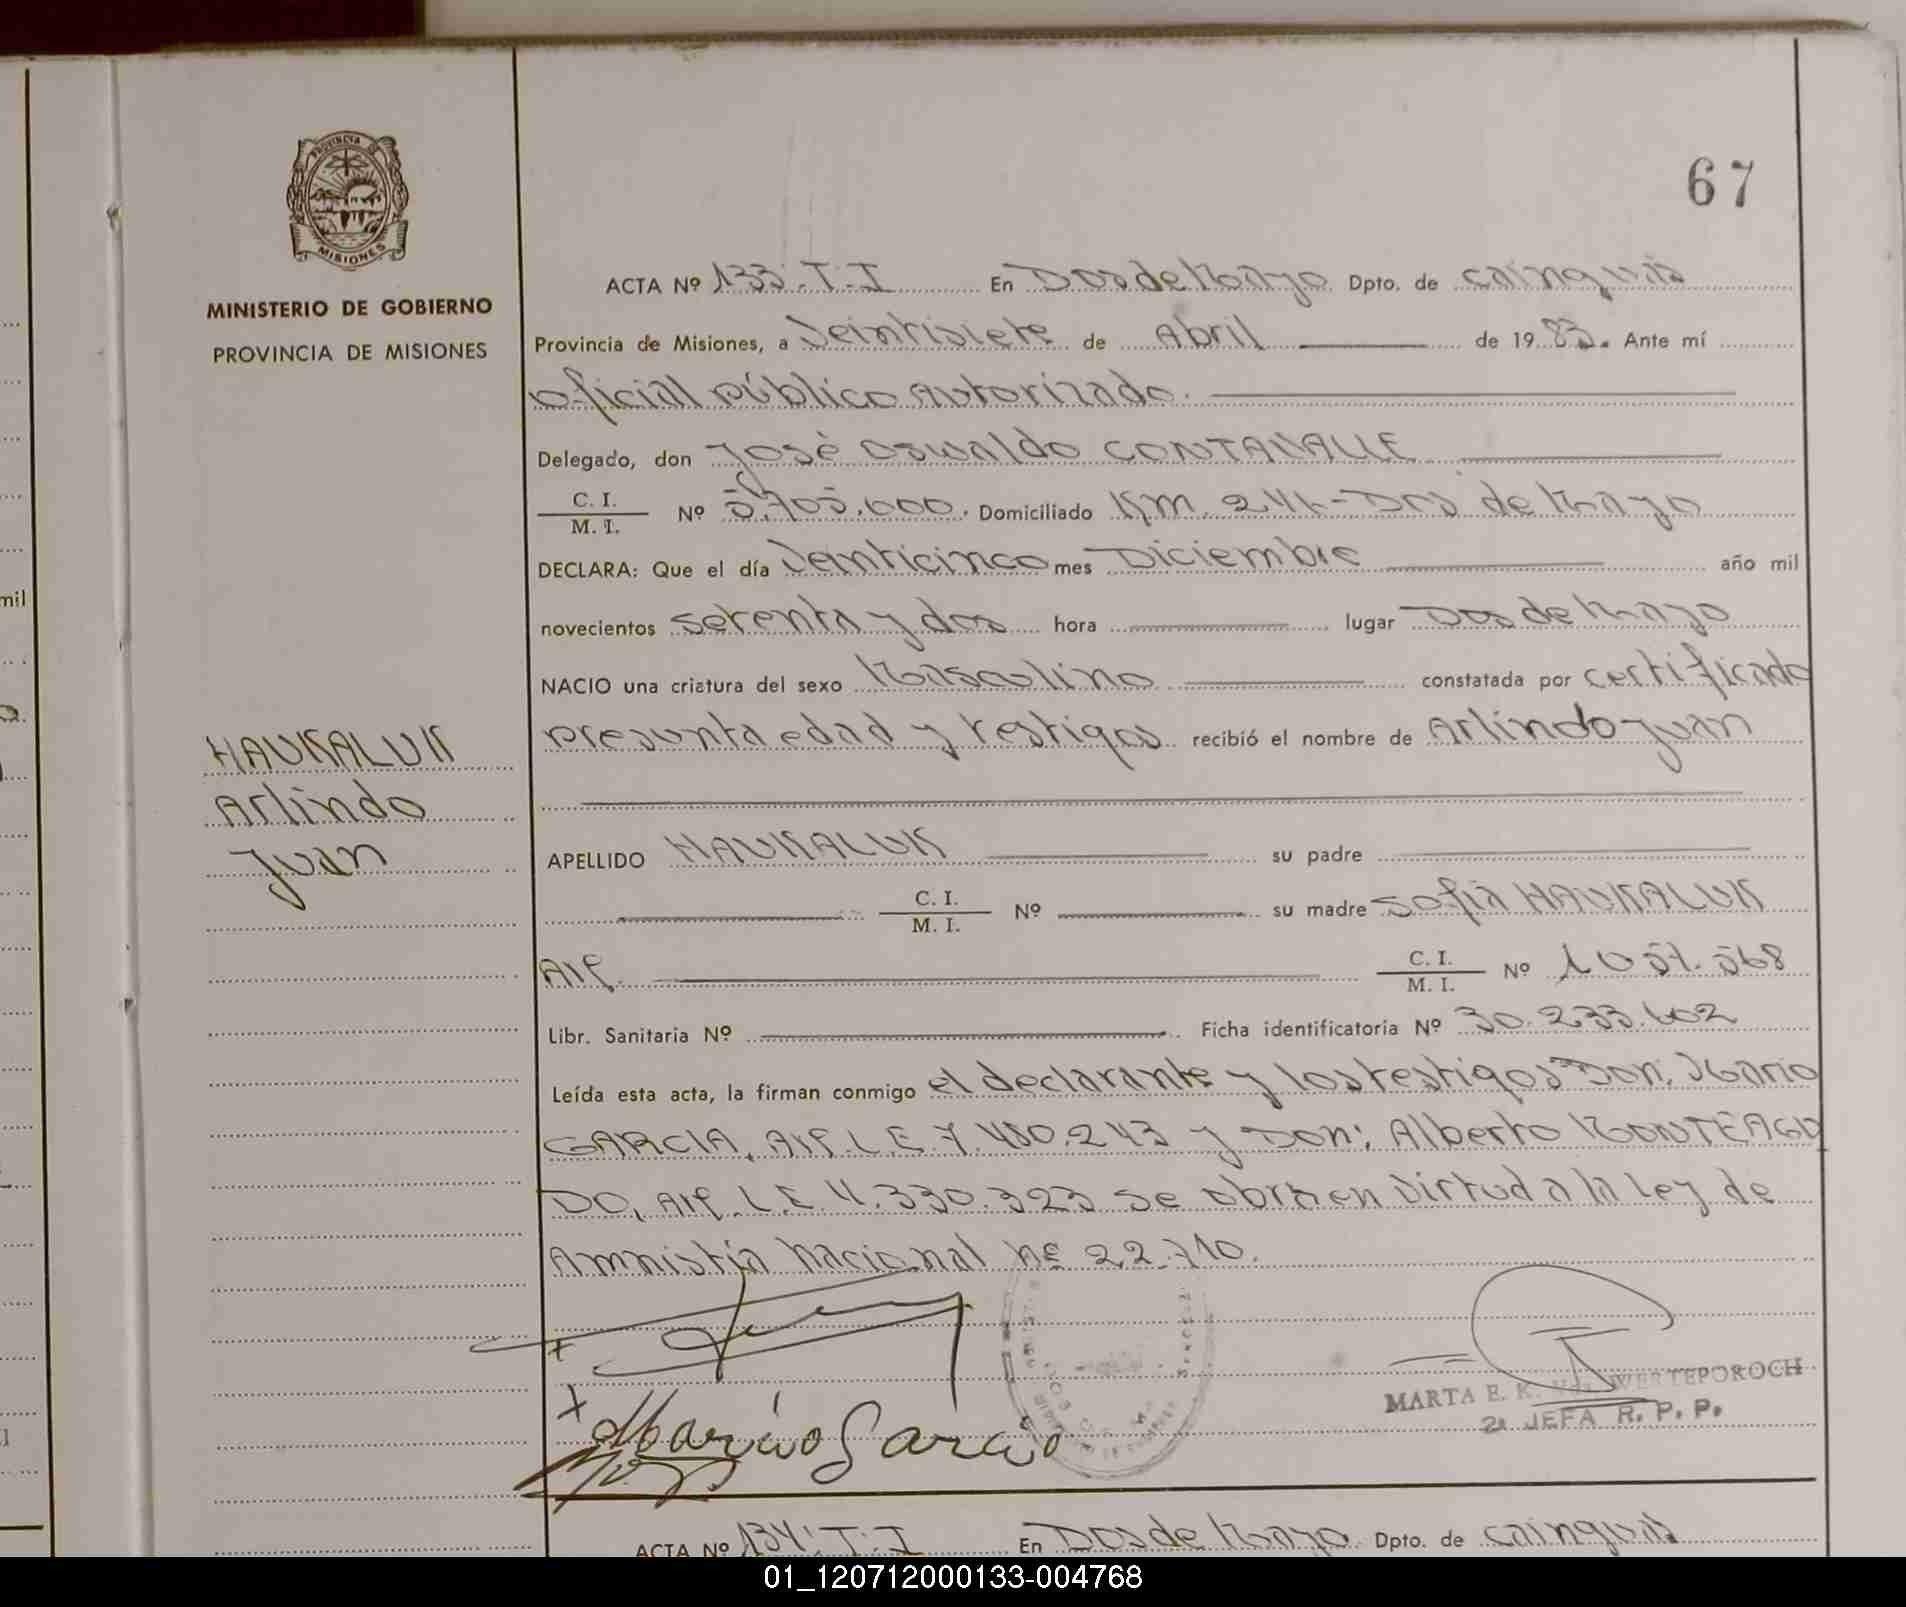 67
PROVINCIA DE
MISIONES
MINISTERIO DE GOBIERNO
PROVINCIA DE MISIONES
ACTA Nº 133. T. I En Dos de Mayo Dpto. de Cainguás
Provincia de Misiones, a Veintisiete de Abril de 1983. Ante mí
Oficial público autorizado.
Delegado, don José Oswaldo CONTAVALLE
C. I.
M. I. Nº 5.705.000. Domiciliado KM. 241-Dos de Mayo
DECLARA: Que el día Veinticinco mes Diciembre año mil
novecientos setenta y dos hora lugar Dos de Mayo
NACIO una criatura del sexo Masculino constatada por certificado
presunta edad y testigos recibió el nombre de Arlindo Juan
HAUKALUK
Arlindo
Juan
APELLIDO HAUKALUK su padre
C. I.
M. I. Nº su madre Sofia HAUKALUK
C. I.
M. I. Nº 1051.568
Libr. Sanitaria Nº Ficha identificatoria Nº 30.233.602
Leída esta acta, la firman conmigo el declarante y los testigos Don: Mario
GARCIA, L.E. 7.480.243 y Don: Alberto MONTEAGU
DO, L.E. 4.330.323 se obra en virtud a la Ley de
Amnistía Nacional nº 22.710.
Marcio Garcia
MARTA E. K. Vda. WERTEPOROCH
2a JEFA R. P. P.
ACTA Nº 134. T. I En Dos de Mayo Dpto. de Cainguás
mil
01_120712000133-004768